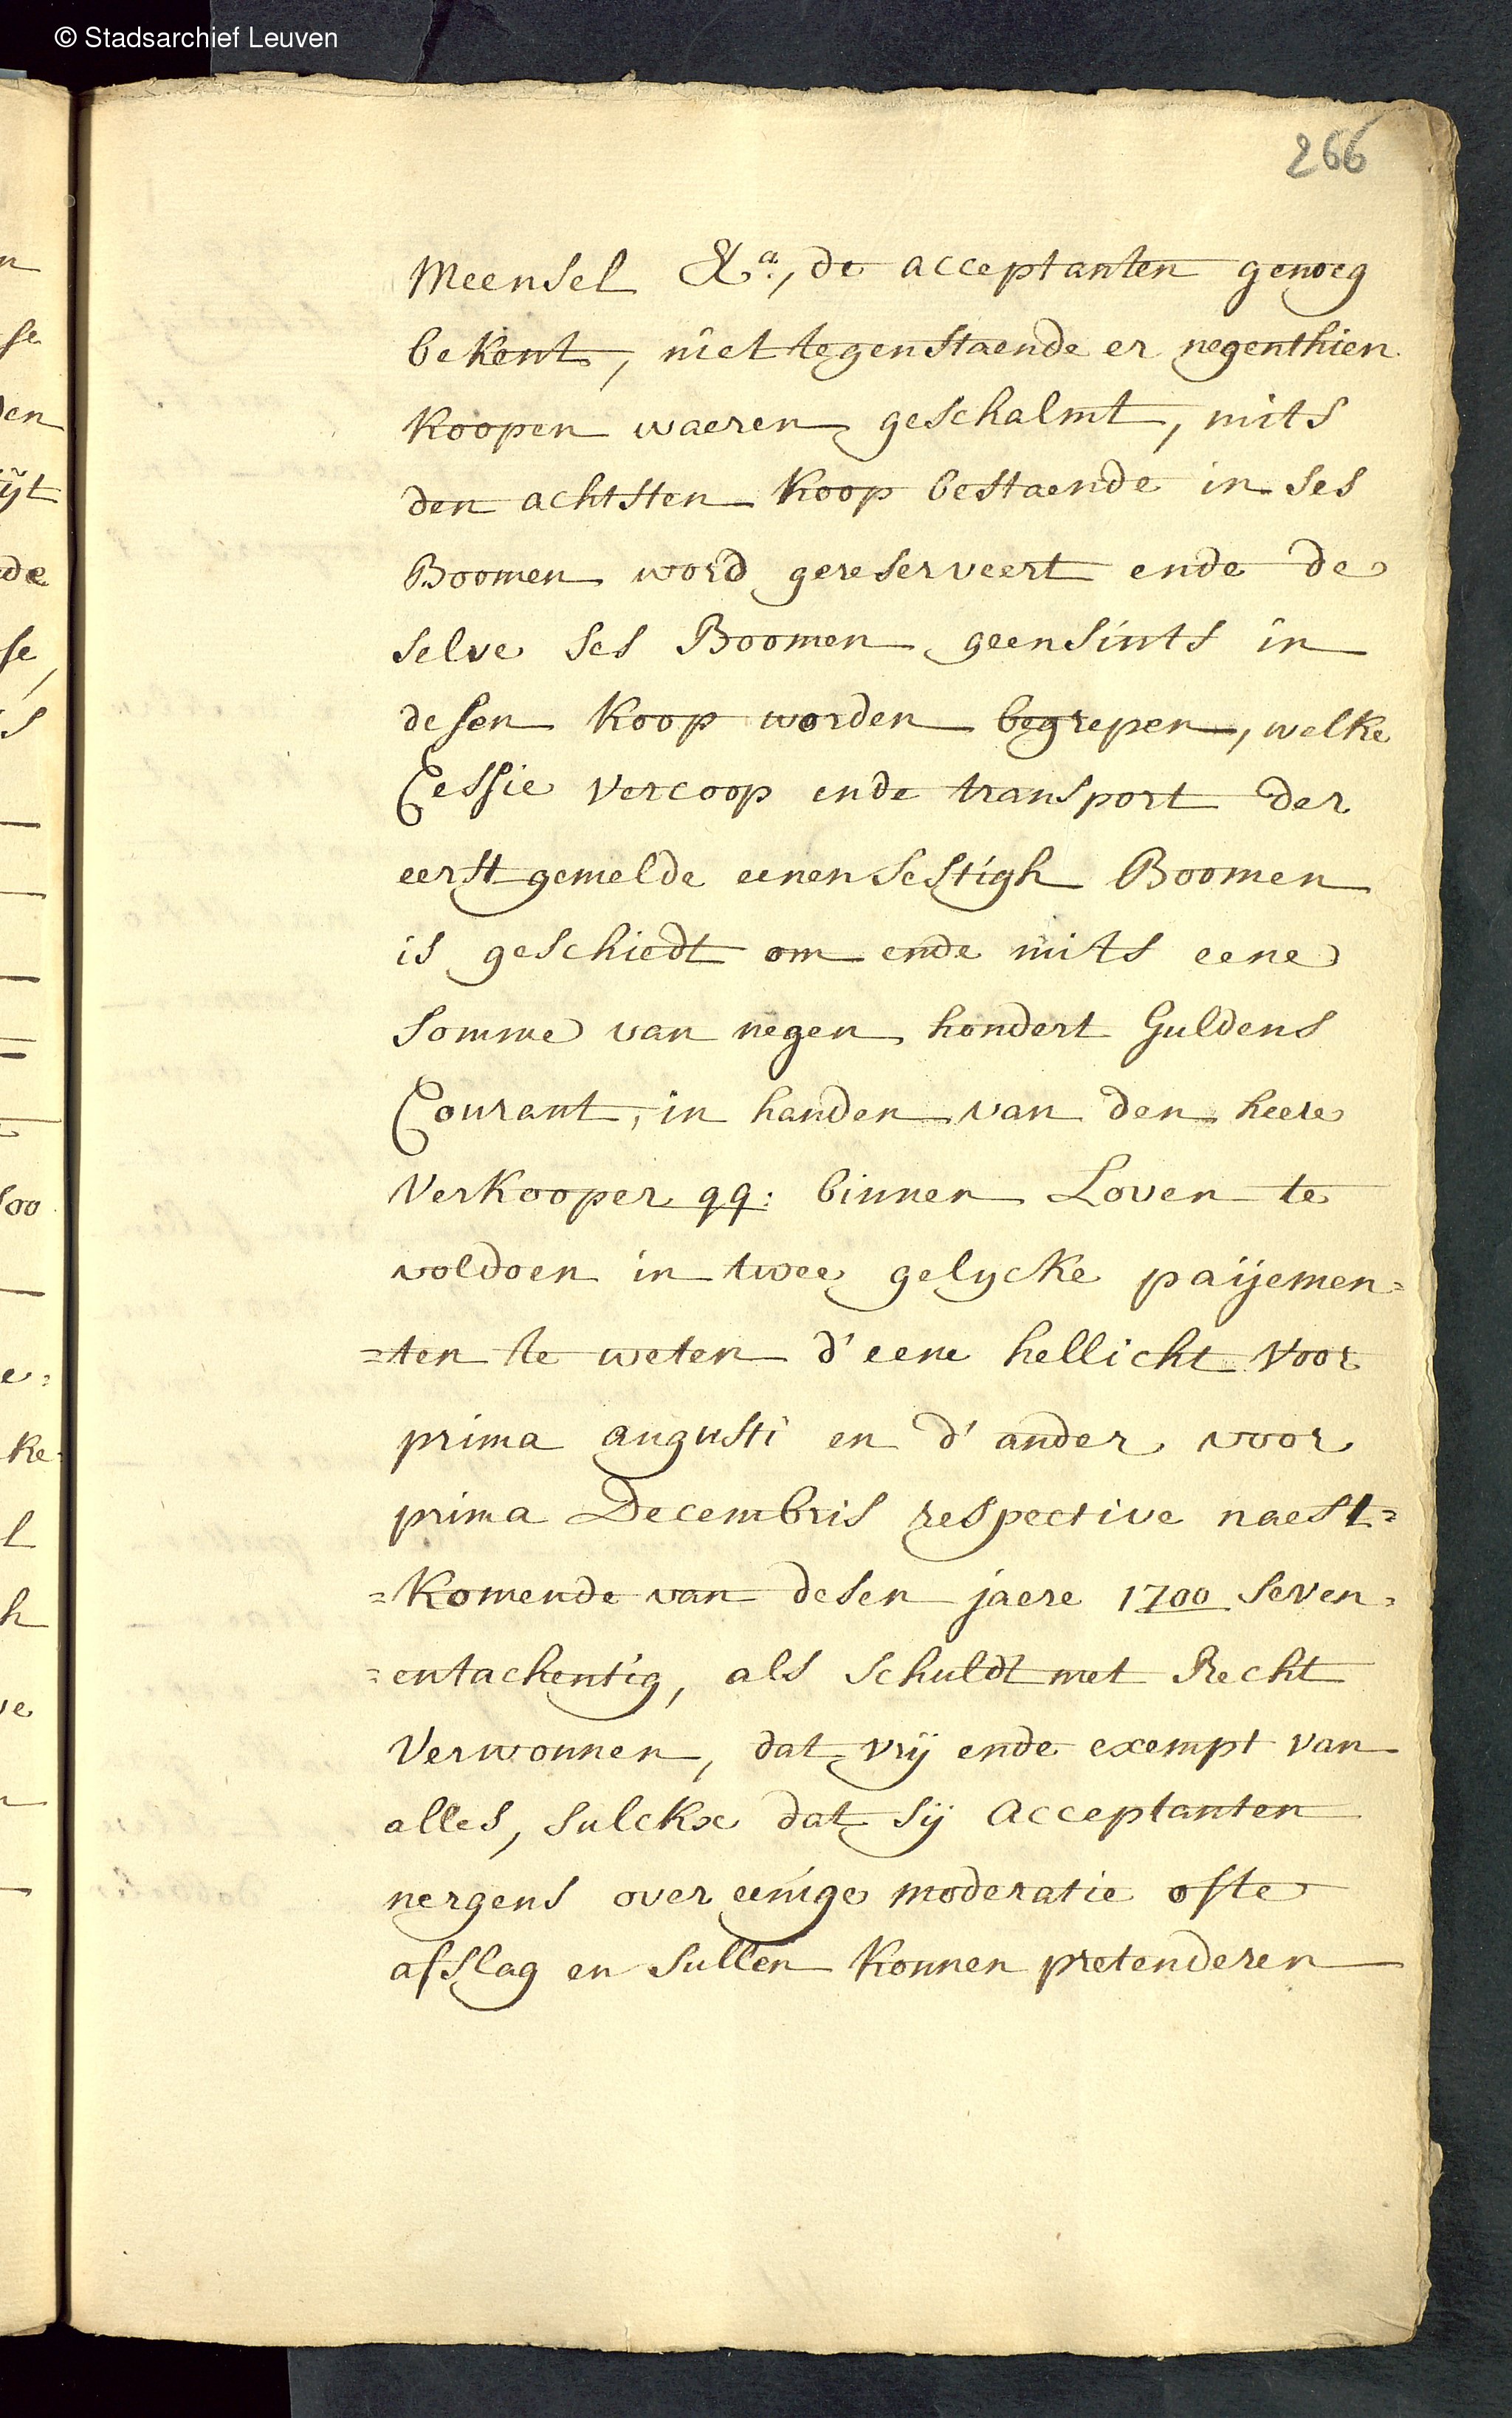 © Stadsarchief Leuven
266
Meensel &a:, de acceptanten genoeg
bekent, niet tegenstaende er negenthien
koopen waeren geschalmt, mits
den achtsten koop bestaende in ses
Boomen word gereserveert ende de
selve ses Boomen geensints in
desen koop worden begrepen, welke
Cessie vercoop ende transport der
eerst gemelde eenen sestigh Boomen
is geschiedt om ende mits eene
somme van negen hondert Guldens
Courant, in handen van den heere
Verkooper qq: binnen Loven te
voldoen in twee gelycke paijemen=
=ten te weten d'eene hellicht voor
prima augusti en d'ander voor
prima Decembris respective naest=
=komende van desen jaere 1700 seven=
=entachentig, als schuldt met Recht
Verwonnen, dat vrij ende exempt van
alles, sulckx dat sij Acceptanten
nergens over eenige moderatie ofte
afslag en sullen konnen pretenderen